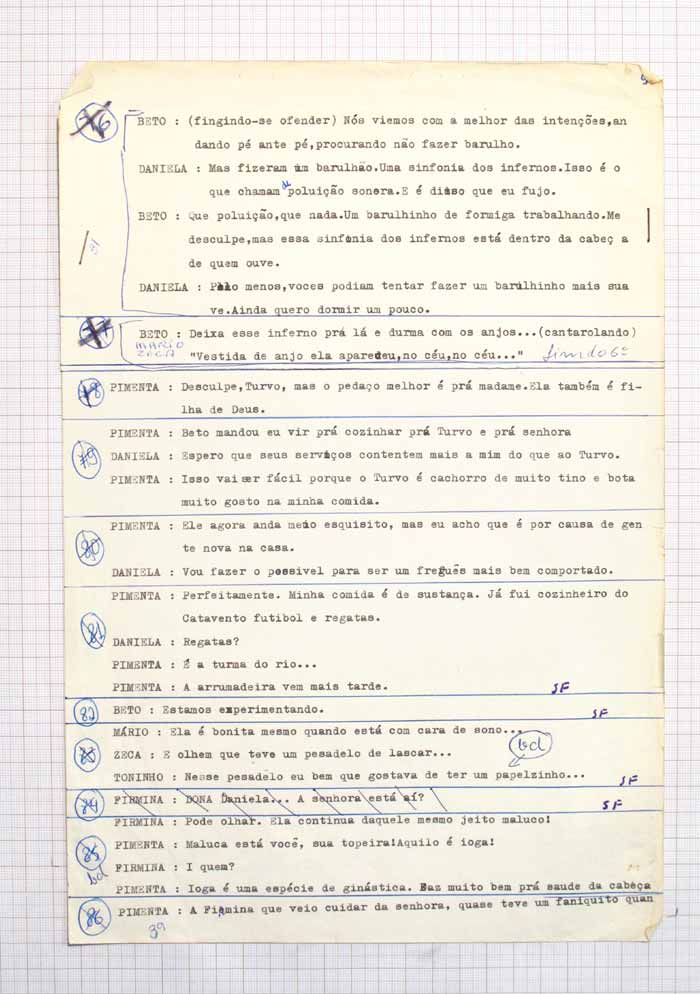 76
BETO : (fingindo-se ofender) Nós viemos com a melhor das intenções,an
dando pé ante pé,procurando não fazer barulho.
DANIELA : Mas fizeram um barulhão.Uma sinfonia dos infernos.Isso é o
que chamam de poluição sonora.E é disso que eu fujo.
BETO : Que poluição,que nada.Um barulhinho de formiga trabalhando.Me
desculpe,mas essa sinfonia dos infernos está dentro da cabeç a
de quem ouve.
DANIELA : Pelo menos,voces podiam tentar fazer um barulhinho mais sua
ve.Ainda quero dormir um pouco.
77
BETO : Deixa esse inferno prá lá e durma com os anjos...(cantarolando)
MARIO
ZECA
"Vestida de anjo ela apareceu,no céu,no céu..." fim do 6º
78
PIMENTA : Desculpe,Turvo, mas o pedaço melhor é prá madame.Ela também é fi-
lha de Deus.
79
PIMENTA : Beto mandou eu vir prá cozinhar prá Turvo e prá senhora
DANIELA : Espero que seus serviços contentem mais a mim do que ao Turvo.
PIMENTA : Isso vai ser fácil porque o Turvo é cachorro de muito tino e bota
muito gosto na minha comida.
80
PIMENTA : Ele agora anda meio esquisito, mas eu acho que é por causa de gen
te nova na casa.
DANIELA : Vou fazer o possivel para ser um freguês mais bem comportado.
81
PIMENTA : Perfeitamente. Minha comida é de sustança. Já fui cozinheiro do
Catavento futibol e regatas.
DANIELA : Regatas?
PIMENTA : É a turma do rio...
PIMENTA : A arrumadeira vem mais tarde. SF
82
BETO : Estamos experimentando. SF
83
MÁRIO : Ela é bonita mesmo quando está com cara de sono...
ZECA : E olhem que teve um pesadelo de lascar... bd
TONINHO : Nesse pesadelo eu bem que gostava de ter um papelzinho... SF
84
FIRMINA : DONA Daniela... A senhora está aí? SF
85
bd
FIRMINA : Pode olhar. Ela continua daquele mesmo jeito maluco!
PIMENTA : Maluca está você, sua topeira!Aquilo é ioga!
FIRMINA : I quem?
PIMENTA : Ioga é uma espécie de ginástica. Faz muito bem prá saude da cabeça
86
PIMENTA : A Firmina que veio cuidar da senhora, quase teve um faniquito quan